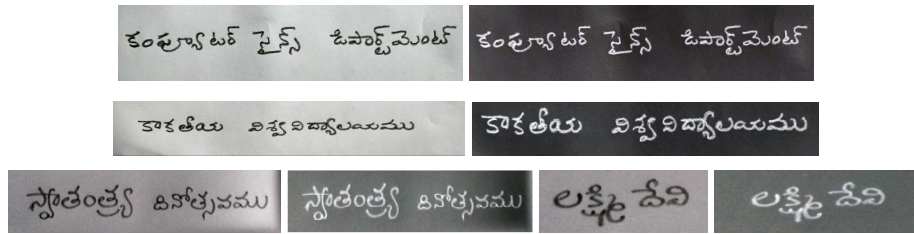 కంప్యూటర్ సైన్స్ డిపార్ట్‌మెంట్ కంప్యూటర్ సైన్స్ డిపార్ట్‌మెంట్
కాకతీయ విశ్వవిద్యాలయము కాకతీయ విశ్వవిద్యాలయము
స్వాతంత్ర్య దినోత్సవము స్వాతంత్ర్య దినోత్సవము లక్ష్మి దేవి లక్ష్మి దేవి